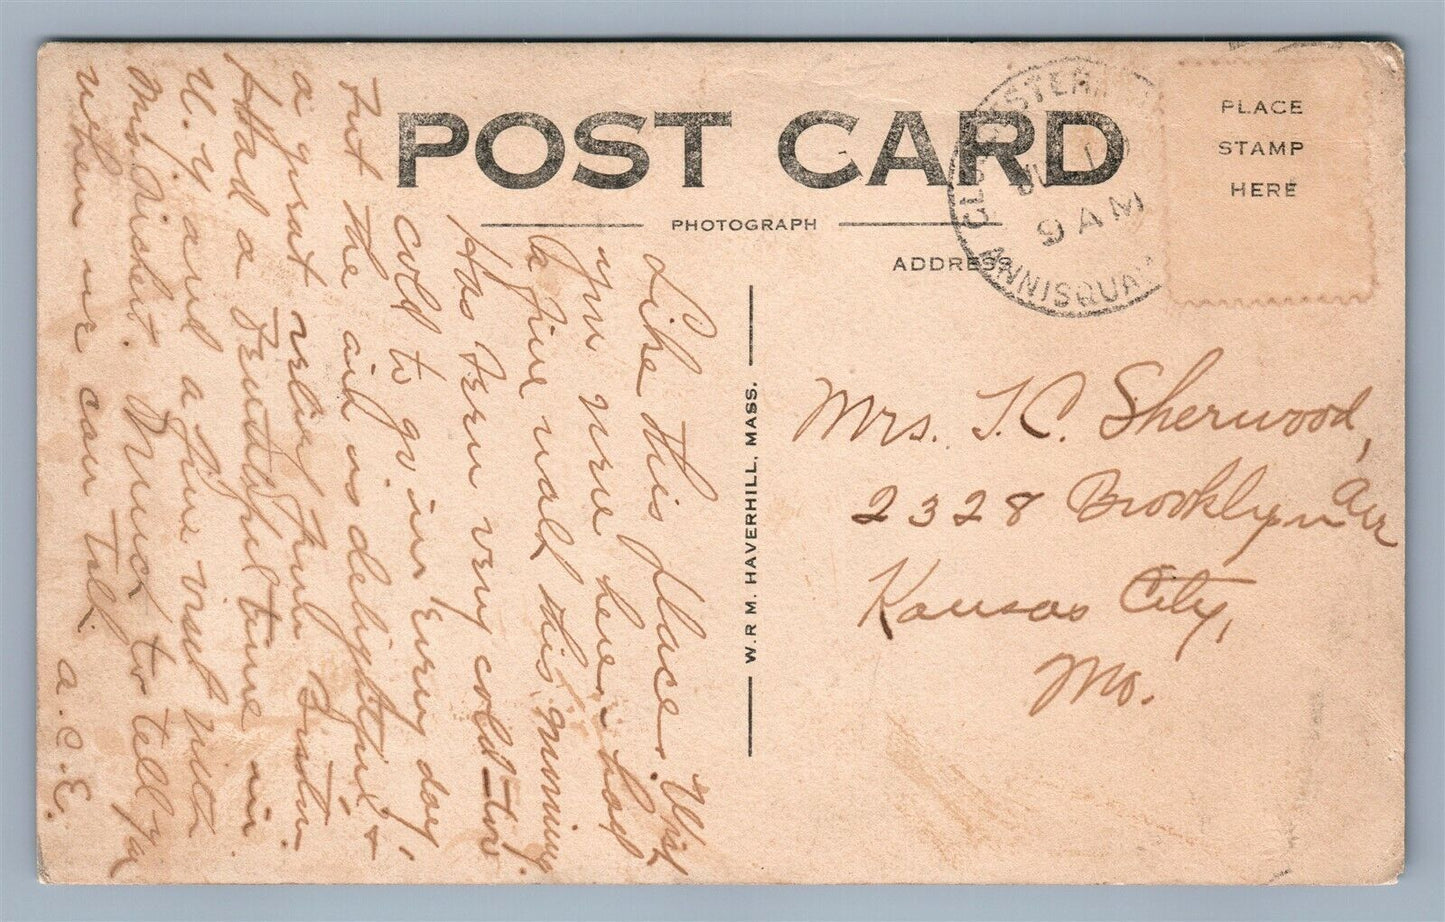 POST CARD
PHOTOGRAPH
ADDRESS
PLACE
STAMP
HERE
GLOUCESTER
JUL
9 AM
ANNISQUAM
W.R M. HAVERHILL, MASS.
Mrs. J. C. Sherwood,
2328 Brooklyn Ave
Kansas City,
Mo.
Like this place. Wish
you were here. had
a fine walk this morning.
Has been very cold - too
cold to go in every day
but the air is delightful &
a great relief from Boston.
Had a beautiful time in
N. Y. and a fine visit with
Mrs. Much to tell you
when we can talk.
A.C.E.